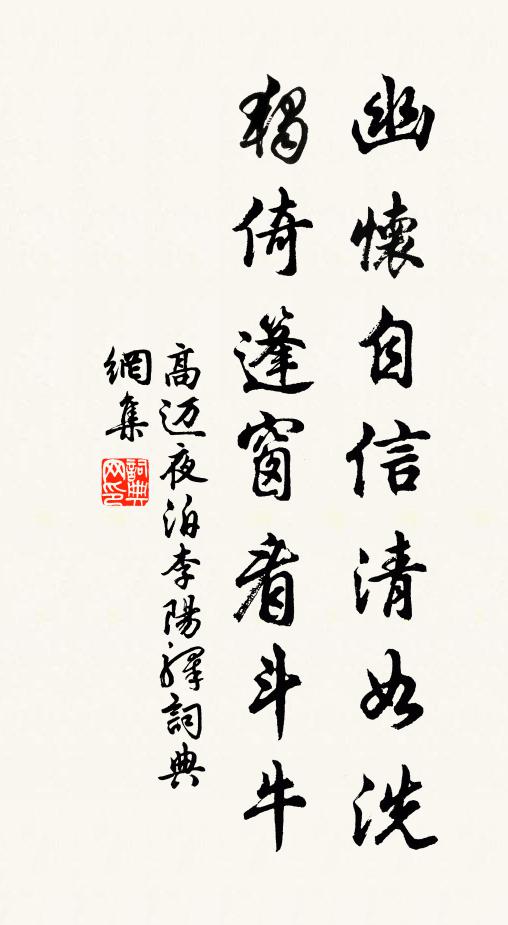 幽懷自信清如洗
獨倚篷窗看斗牛
高迈夜泊李陽驛詞典
網集
詞典
网印